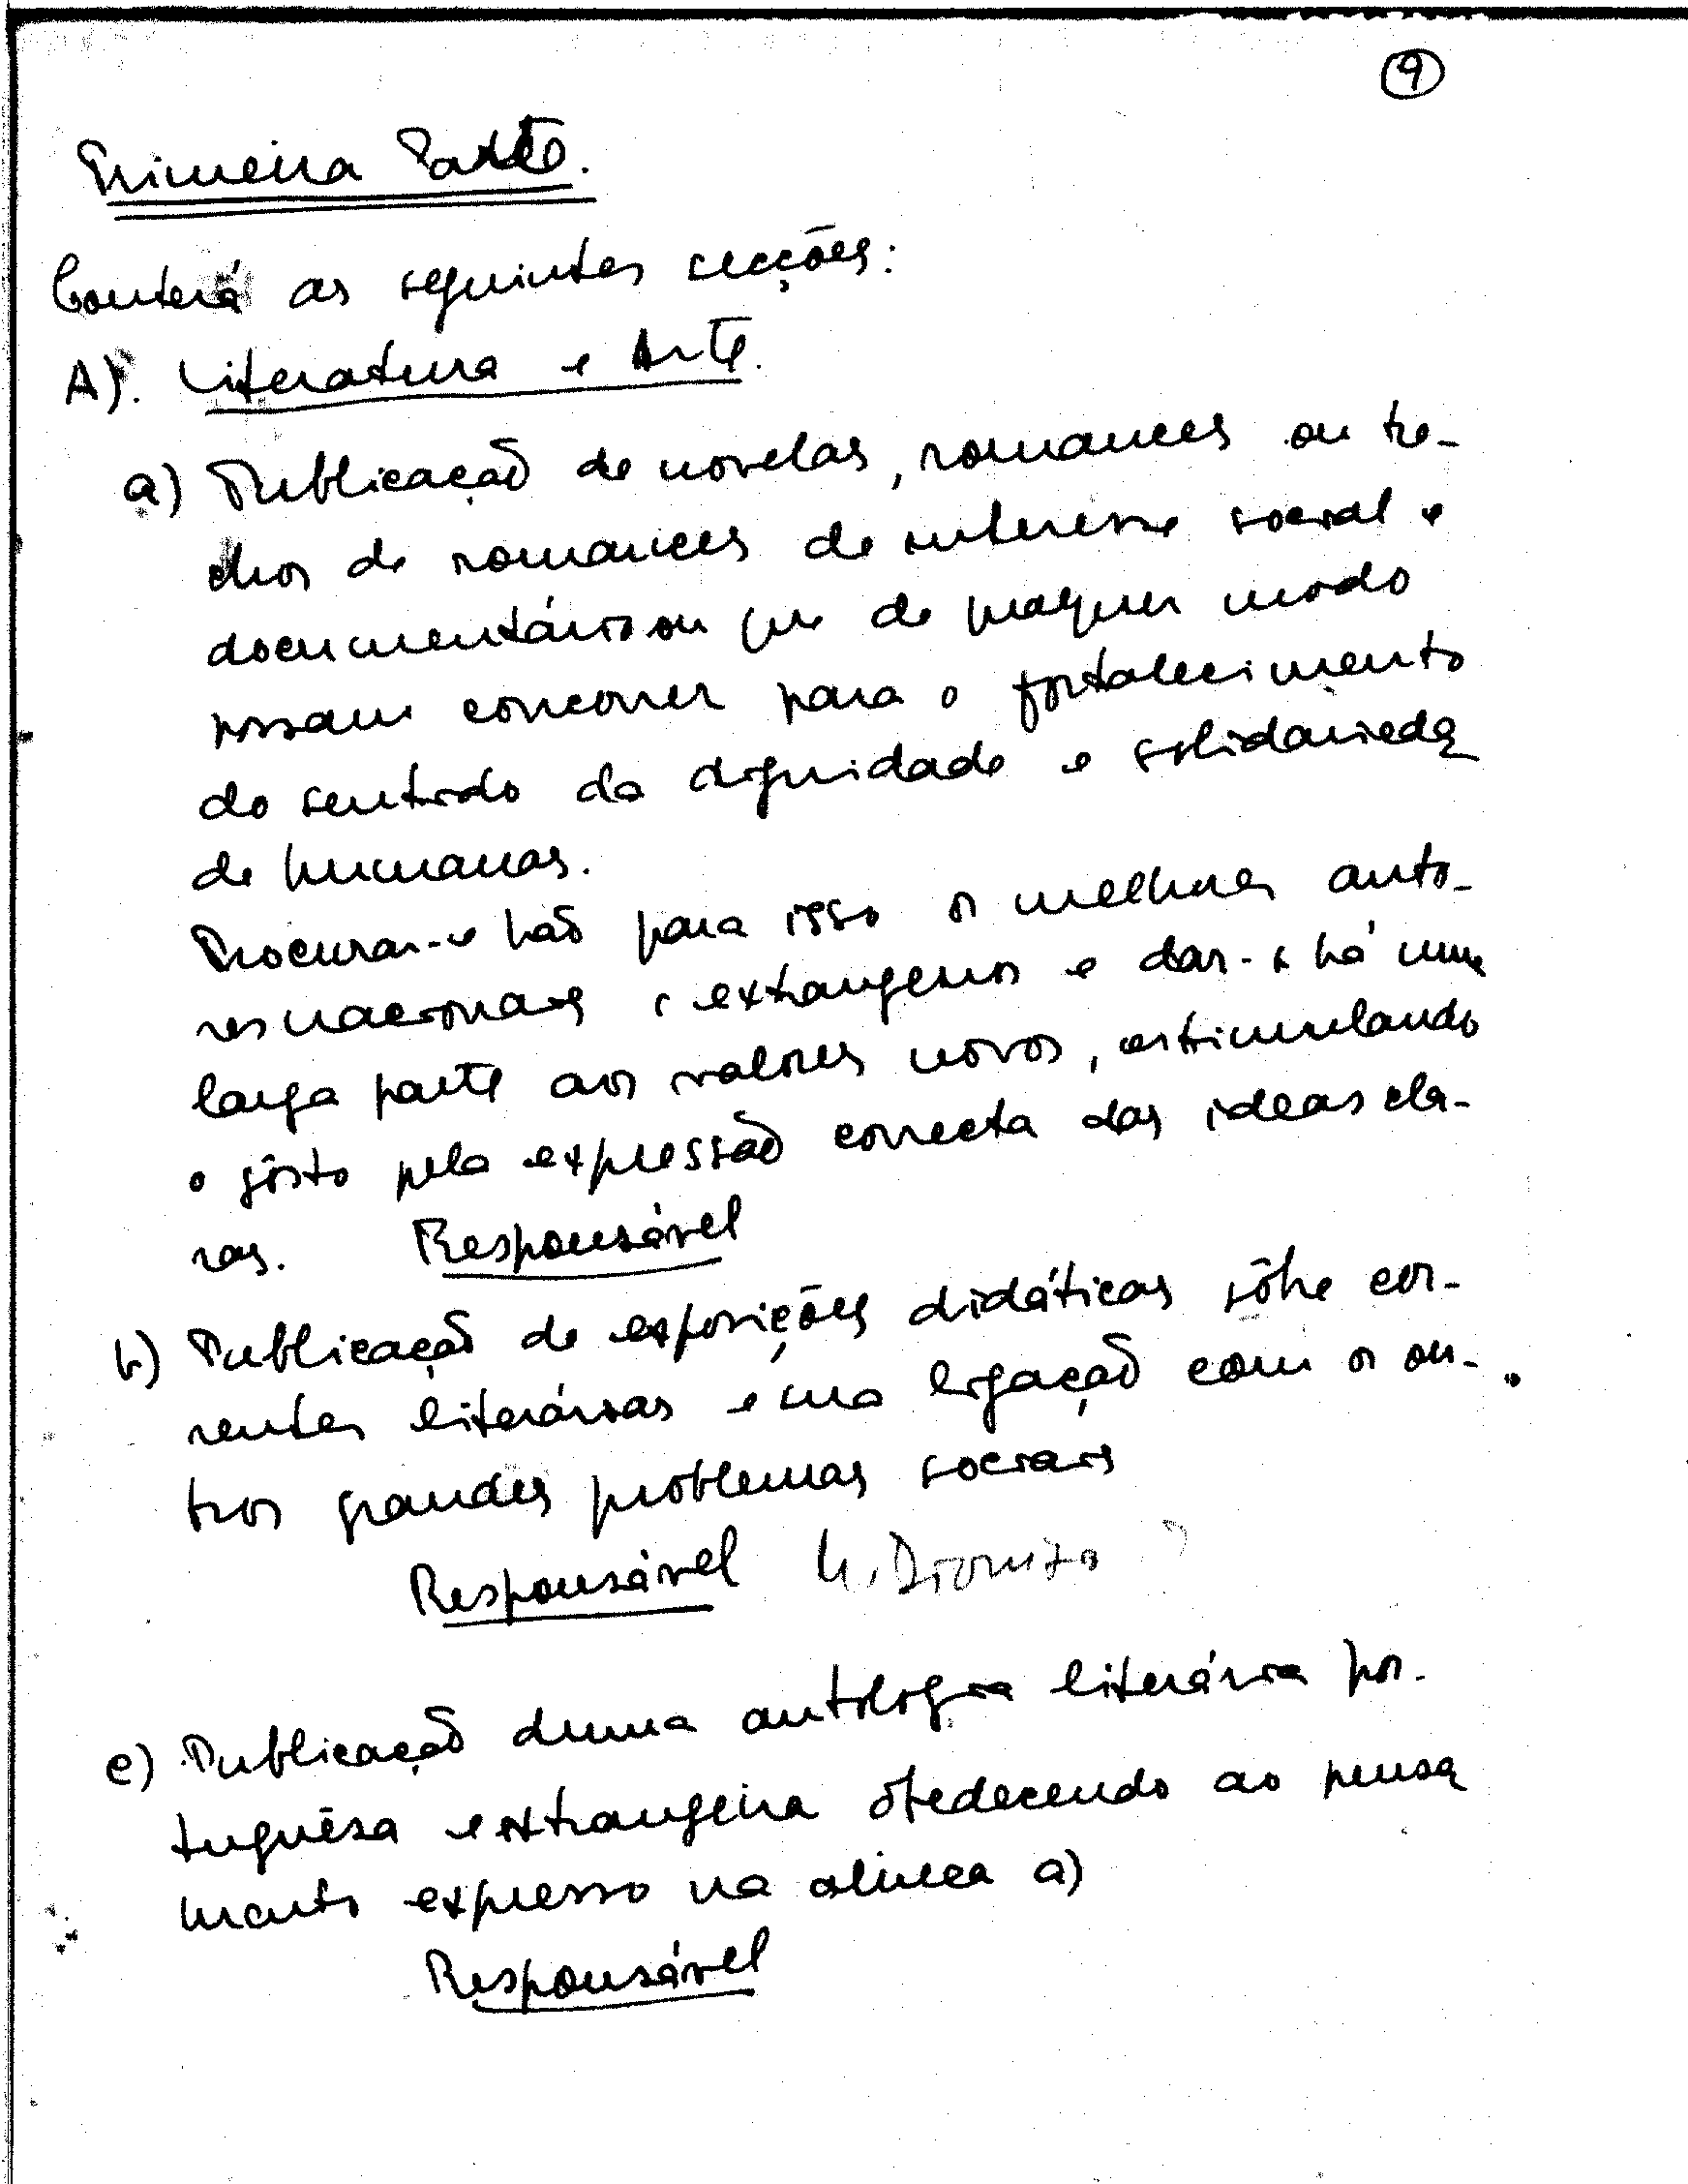 9
Primeira Parte.
Conterá as seguintes secções:
A). Literatura e Arte.
a) Publicação de novelas, romances ou tre-
chos de romances de interesse social e
documentário ou que de qualquer modo
possam concorrer para o fortalecimento
do sentido da dignidade e solidarieda
de humanas.
Procurar-se hão para isso os melhores auto-
res nacionais e extrangeiros e dar-se há uma
larga parte aos valores novos, estimulando
o gôsto pela expressão correcta das ideas cla-
ras. Responsável
b) Publicação de exposições didáticas sôbre cor-
rentes literárias e sua ligação com os ou-
tros grandes problemas sociais
Responsável M. Dionizo ?
c) Publicação duma antologia literária por-
tuguêsa e extrangeira obedecendo ao pensa
mento expresso na alinea a)
Responsável